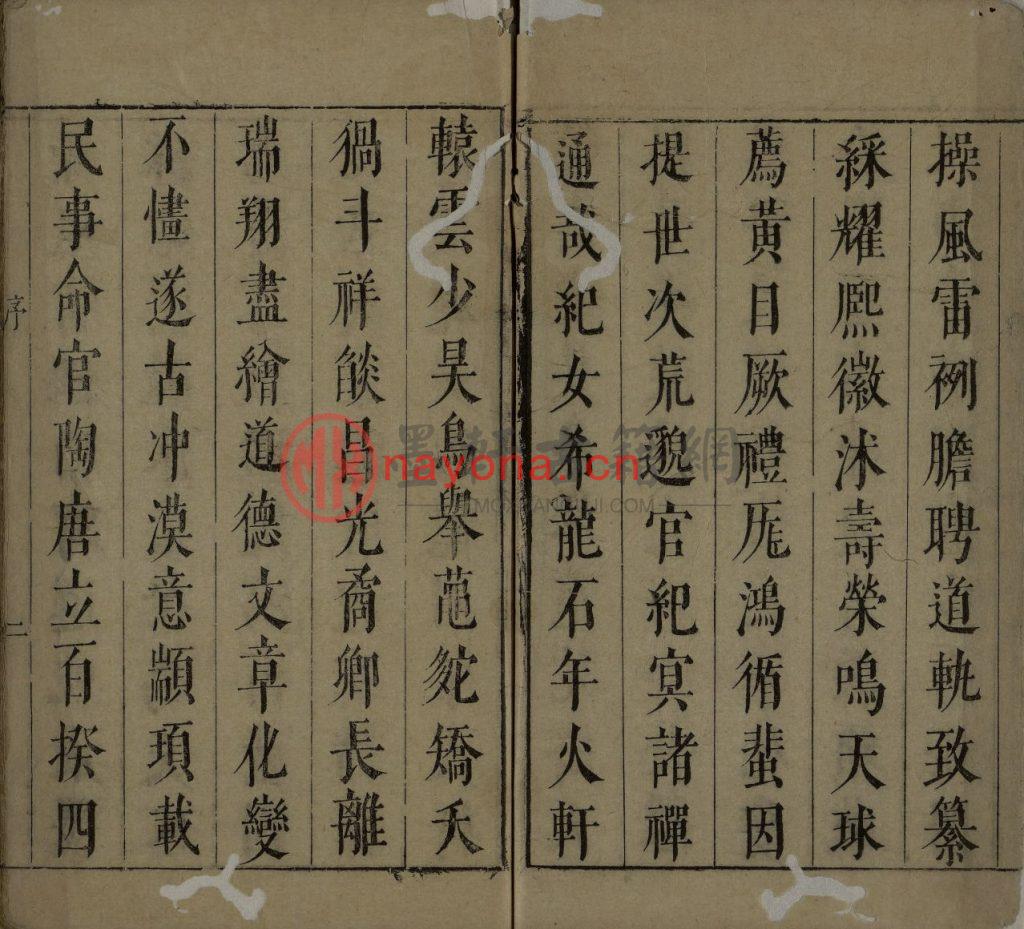 操風雷裂膽聘道軌致纂
綵耀熙徽沭壽榮鳴天球
薦黃目厥禮厖鴻循蜚因
提世次荒邈官紀冥諸禪
通哉紀女希龍石年火軒
轅雲少昊鳥舉蓲蛇矯夭
猧斗祥燄昌光矞卿長離
瑞翔盡繪道德文章化變
不㦎遂古冲漠意顓頊載
民事命官陶唐立百揆四
序
二
墨軒古籍網
MOXUANGUJI.COM
nayona.cn